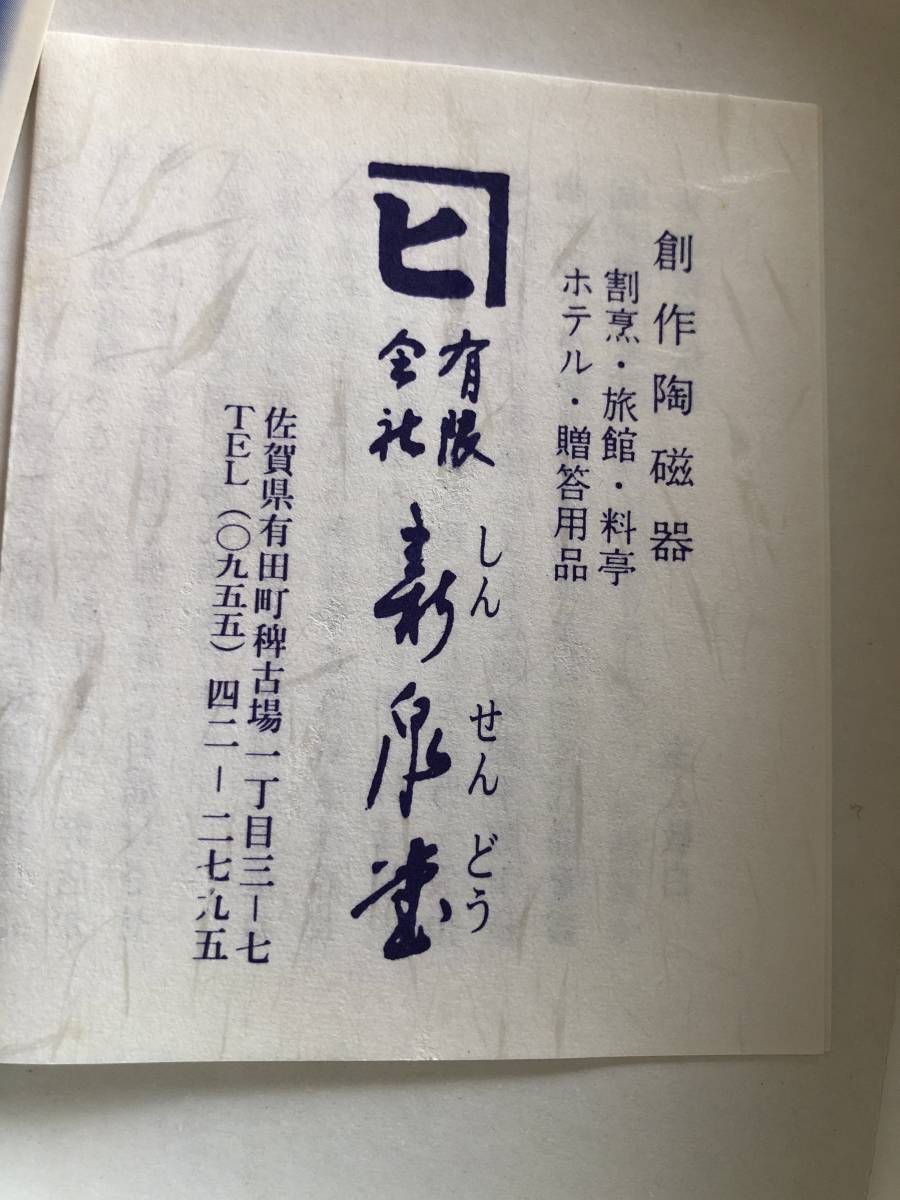 創作陶磁器
割烹・旅館・料亭
ホテル・贈答用品
ヒ
有限会社
しんせんどう
新泉堂
佐賀県有田町稗古場一丁目三ー七
TEL(〇九五五)四二ー二七九五